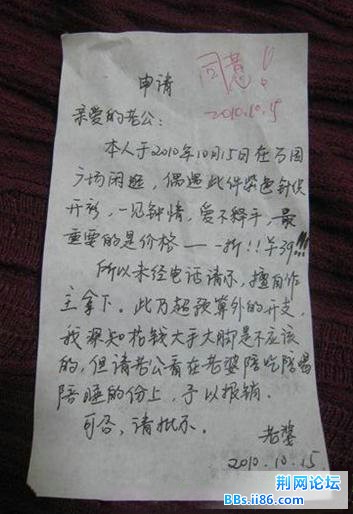 同意!
2010.10.15
申请
亲爱的老公:
本人于2010年10月15日在万国
广场闲逛,偶遇此件紫色针织
开衫,一见钟情,爱不释手,最
重要的是价格——一折!!羊39!!!
所以未经电话请示,擅自作
主拿下。此乃超预算外的开支,
我深知花钱大手大脚是不应该
的,但请老公看在老婆陪吃陪喝
陪睡的份上,予以报销.
可否,请批示.
老婆
2010.10.15
荆网论坛
BBs.ii86.com